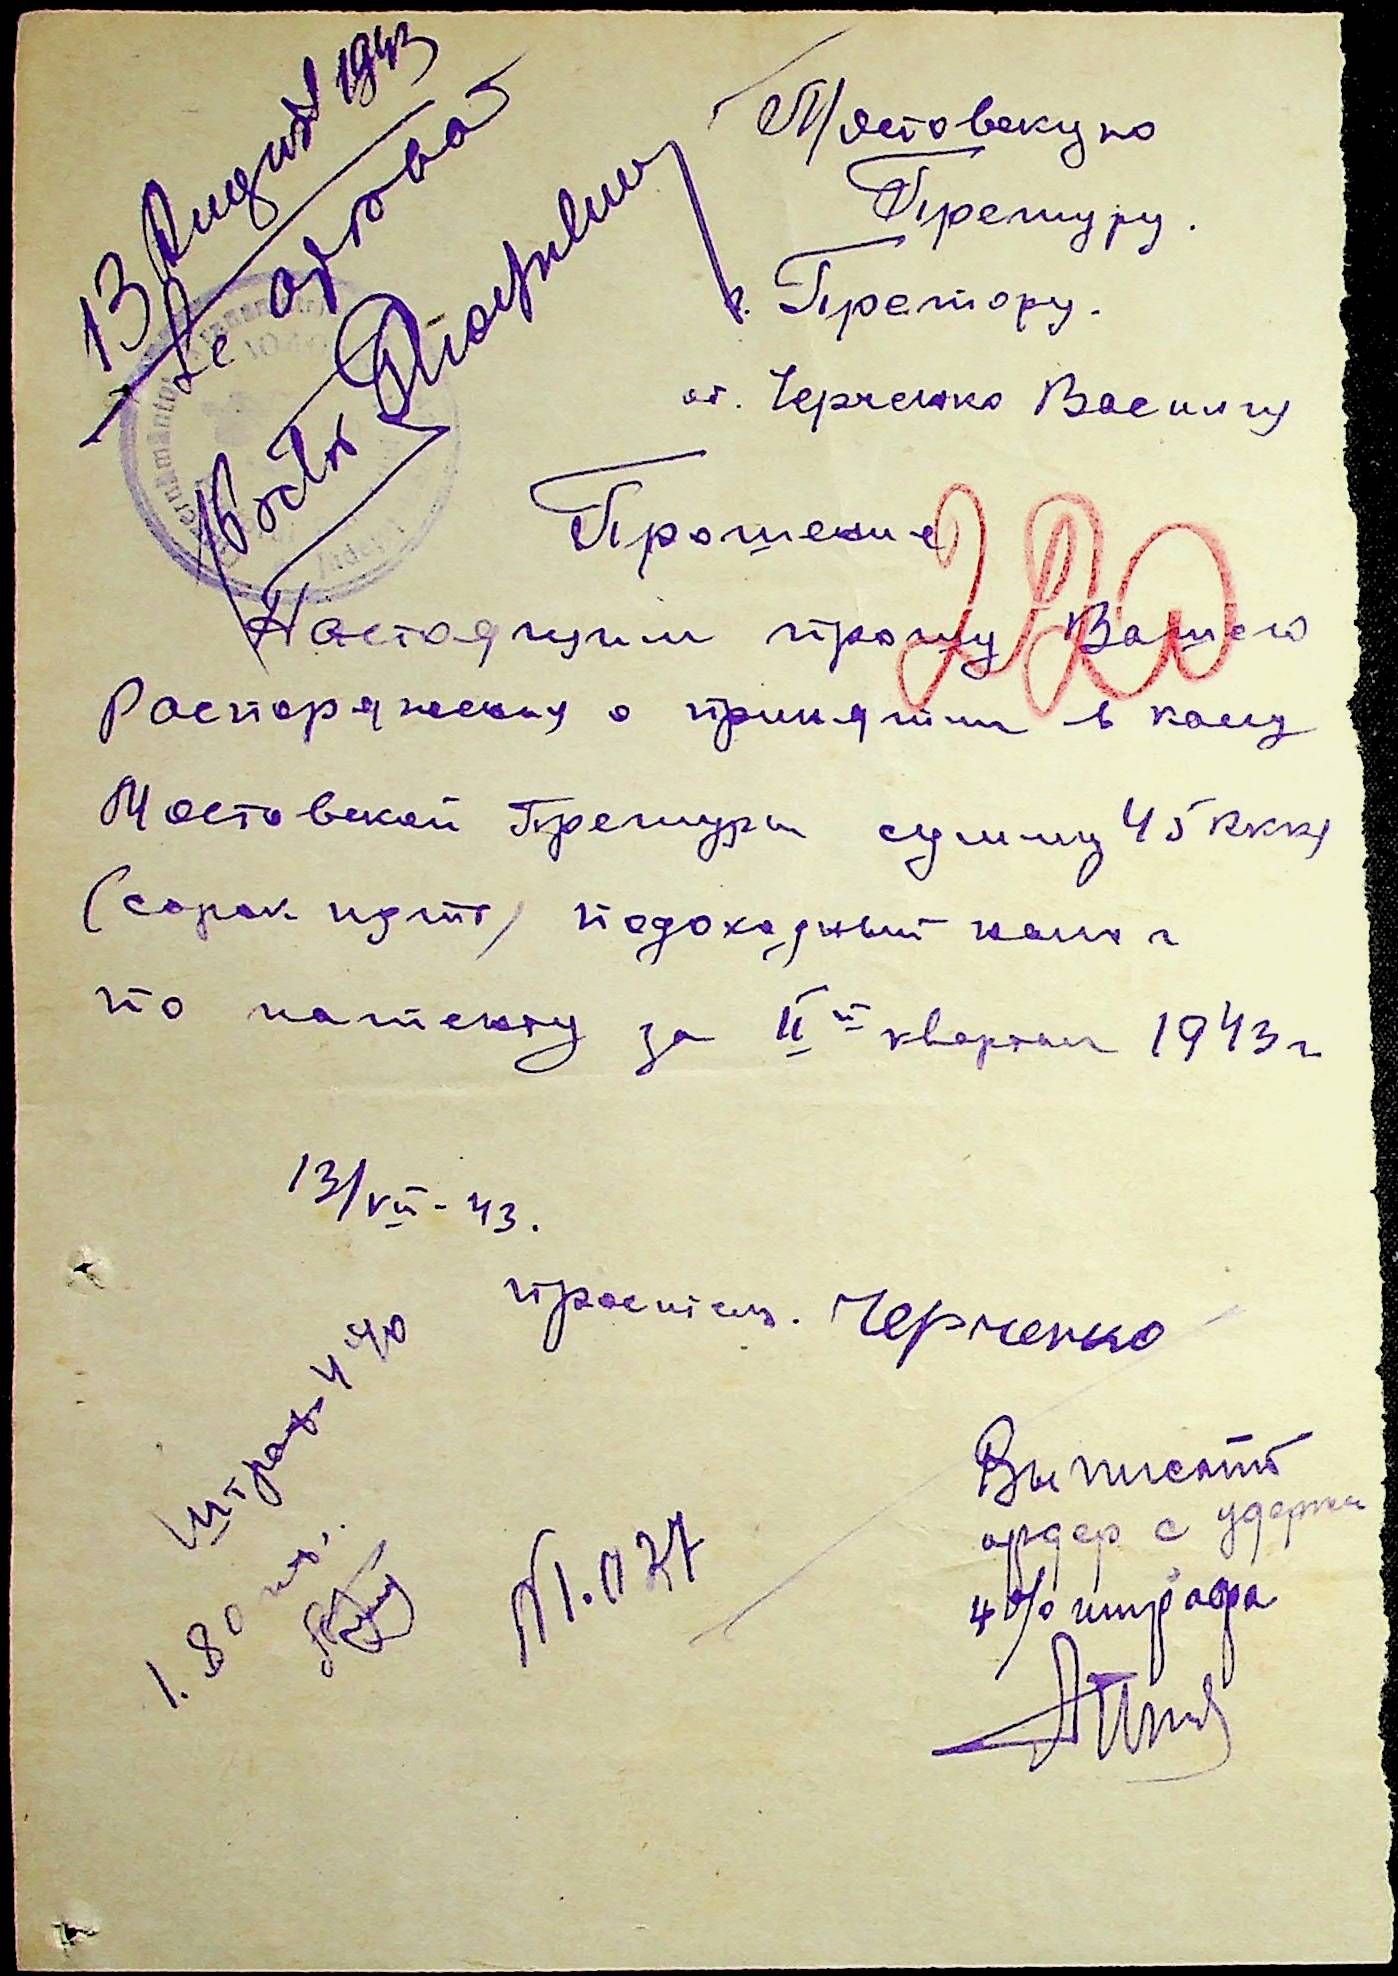 13 August 1943
Se aproba
Мястовскую
Претуру.
г. Претору.
от. Черченко Василия
Прошение
220
Настоящим прошу Вашего
Распоряжения о принятии в касу
Мостовской Претуры сумму 45 RKKS
(сорок пять) подоходный налог
по патенту за II й квартал 1943 г
13/VII - 43.
проситель. Черченко
Штраф 4%
1.80
Выписать
ордер с удержа
4% штрафа